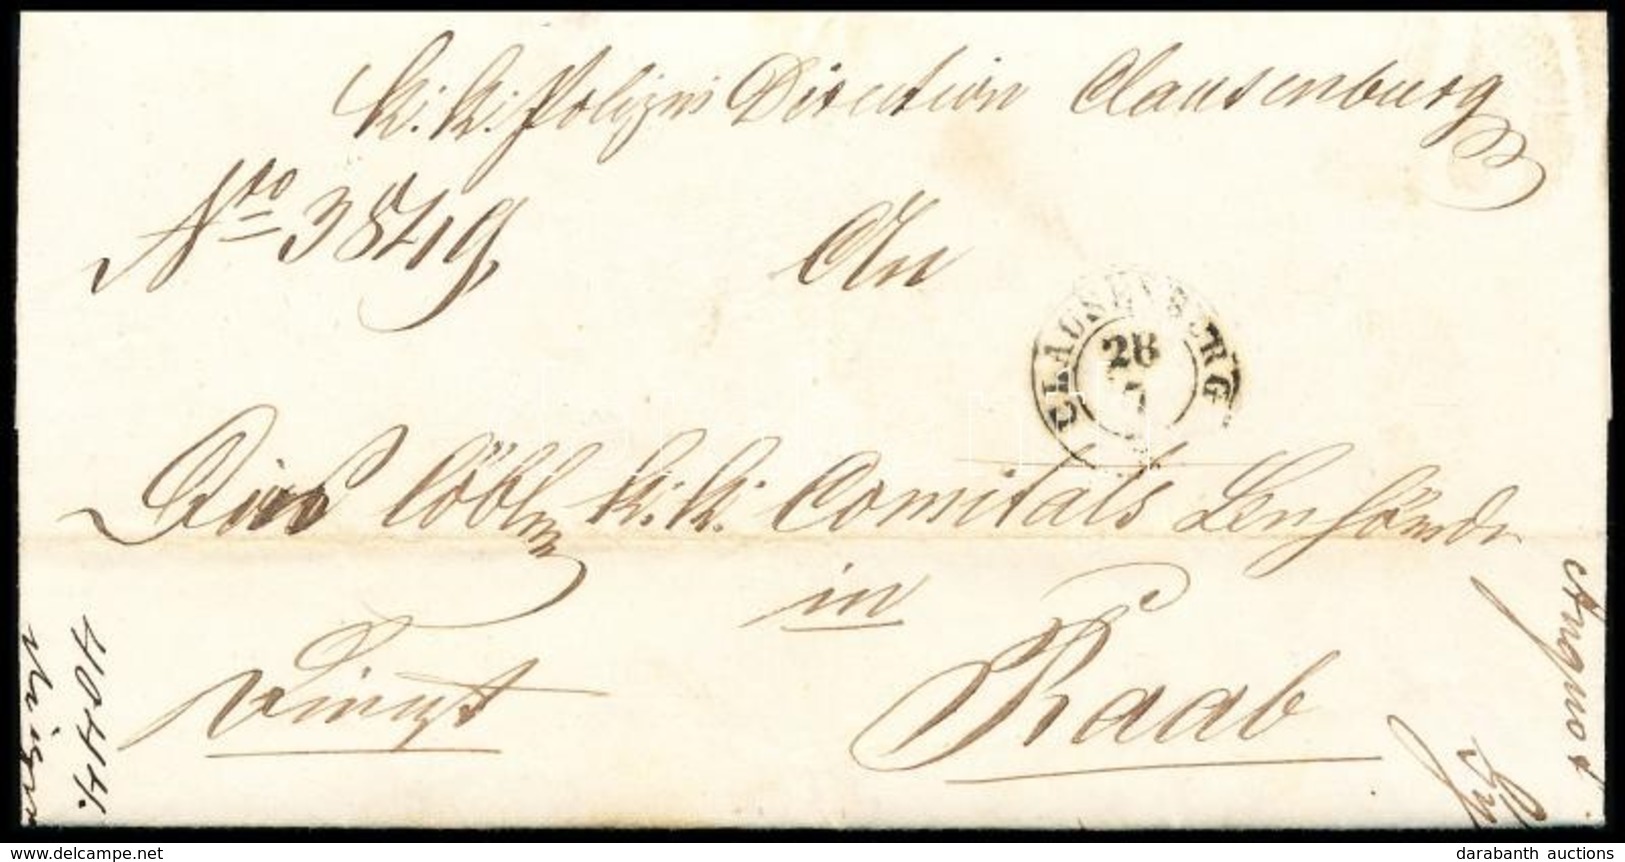 K. K. Polizei Direction Clausenburg
Nro 3849
An
CLAUSENBURG
28
7
Die löbliche K. K. Comitats Behörde
in
Raab
Dienst
4044.
www.delcampe.net
darabanth auctions